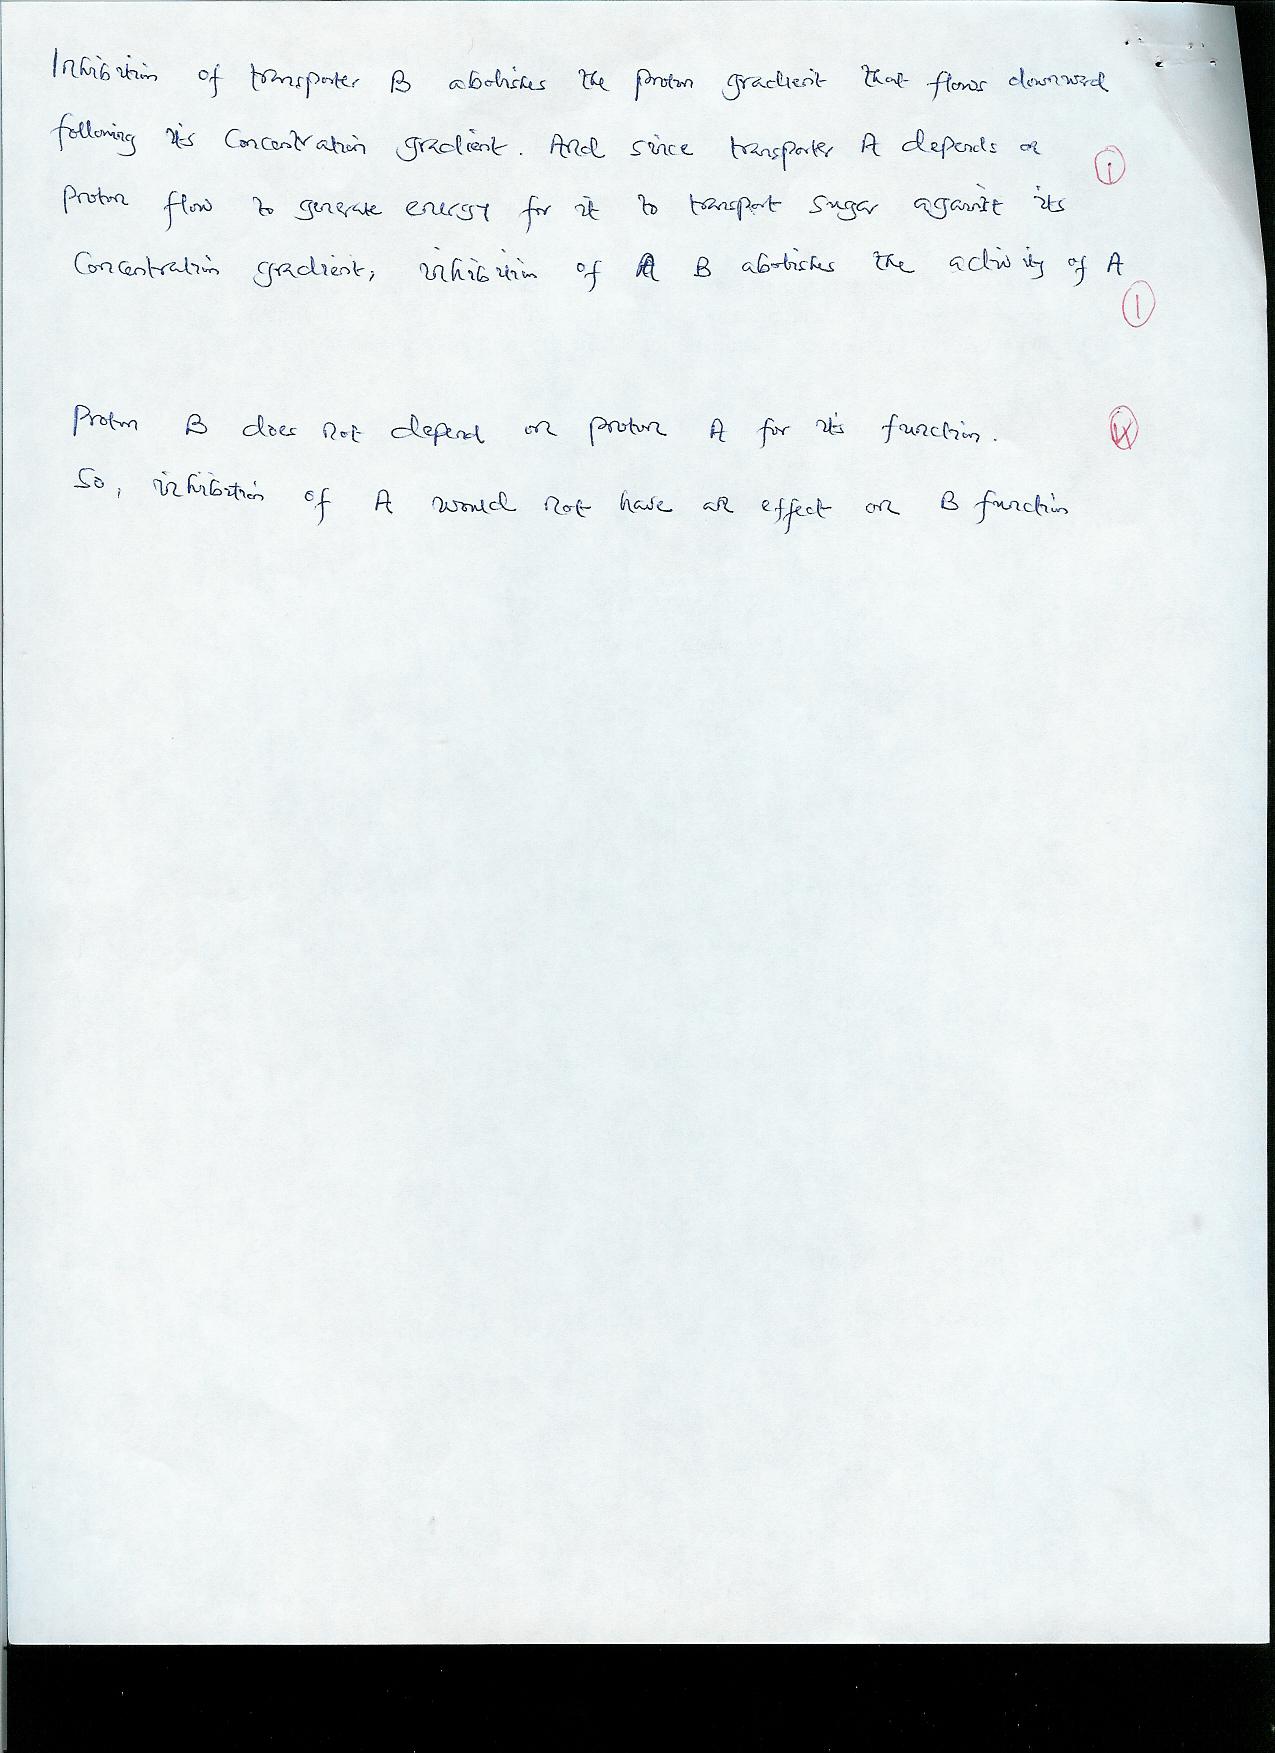 Inhibition of transporter B abolishes the proton gradient that flows downward
following its concentration gradient. And since transporter A depends on
Proton flow to generate energy for it to transport sugar against its
Concentration gradient, inhibition of A B abolishes the activity of A
1
1
Proton B does not depend on proton A for its function.
So, inhibition of A would not have an effect on B function